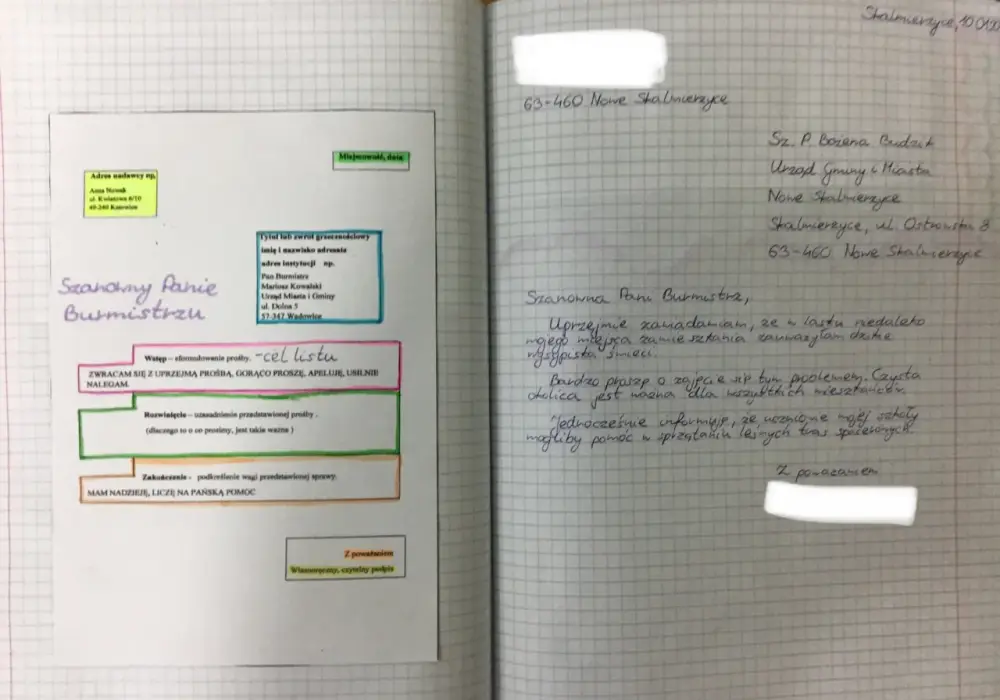 Miejscowość, data
Adres nadawcy np.
Anna Nowak
ul. Kwiatowa 6/10
40-240 Katowice
Tytuł lub zwrot grzecznościowy
imię i nazwisko adresata
adres instytucji np.
Pan Burmistrz
Mariusz Kowalski
Urząd Miasta i Gminy
ul. Dolna 5
57-347 Wadowice
Szanowny Panie
Burmistrzu
Wstęp – sformułowanie prośby. - cel listu
ZWRACAM SIĘ Z UPRZEJMĄ PROŚBĄ, GORĄCO PROSZĘ, APELUJĘ, USILNIE
NALEGAM.
Rozwinięcie – uzasadnienie przedstawionej prośby .
(dlaczego to o co prosimy, jest takie ważne )
Zakończenie - podkreślenie wagi przedstawionej sprawy.
MAM NADZIEJĘ, LICZĘ NA PAŃSKĄ POMOC
Z poważaniem
Własnoręczny, czytelny podpis
Skalmierzyce, 10.01
63-460 Nowe Skalmierzyce
Sz. P. Bożena Budzik
Urząd Gminy i Miasta
Nowe Skalmierzyce
Skalmierzyce, ul. Ostrowska 8
63-460 Nowe Skalmierzyce
Szanowna Pani Burmistrz,
Uprzejmie zawiadamiam, że w lasku niedaleko
mojego miejsca zamieszkania zauważyłam dzikie
wysypiska śmieci.
Bardzo proszę o zajęcie się tym problemem. Czysta
okolica jest ważna dla wszystkich mieszkańców.
Jednocześnie informuję, że uczniowie mojej szkoły
mogliby pomóc w sprzątaniu leśnych tras spacerowych.
Z poważaniem